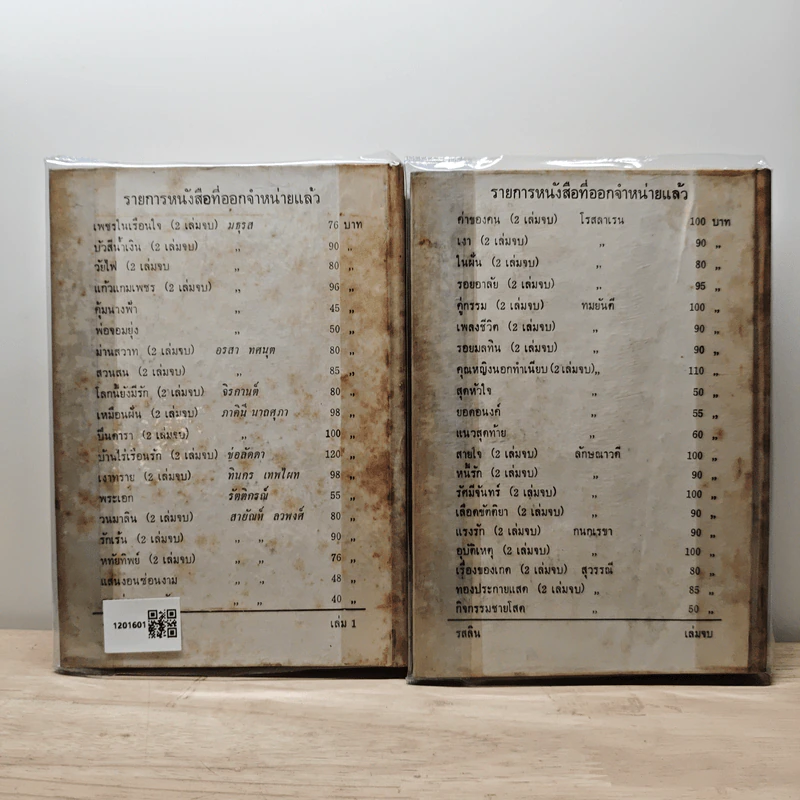 รายการหนังสือที่ออกจำหน่ายแล้ว
เพชรในเรือนใจ (2 เล่มจบ) มธุรส 76 บาท
บัวสีน้ำเงิน (2 เล่มจบ) ,, 90 ,,
วัยไฟ (2 เล่มจบ ,, 80 ,,
แก้วแกมเพชร (2 เล่มจบ) ,, 96 ,,
คุ้มนางฟ้า ,, 45 ,,
พ่อจอมยุ่ง ,, 50 ,,
ม่านสวาท (2 เล่มจบ) อรสา ทศนุต 80 ,,
สวนสน (2 เล่มจบ) ,, 85 ,,
โลกนี้ยังมีรัก (2 เล่มจบ) จิรกานต์ 80 ,,
เหมือนฝัน (2 เล่มจบ) ภาคิมี นาถศุภา 98 ,,
บึนดารา (2 เล่มจบ) ,, 100 ,,
บ้านไร่เรือนรัก (2 เล่มจบ) ช่อลัดดา 120 ,,
เงาทราย (2 เล่มจบ) ทินกร เทพไผท 98 ,,
พระเอก รัตติกรณ์ 55 ,,
วนมาลิน (2 เล่มจบ) สายัณห์ ลวพงศ์ 80 ,,
รักเร้น (2 เล่มจบ) ,, ,, 90 ,,
หทัยทิพย์ (2 เล่มจบ) ,, ,, 76 ,,
แสนงอนซ่อนงาม ,, ,, 48 ,,
,, ,, 40 ,,
1201601
เล่ม 1
รายการหนังสือที่ออกจำหน่ายแล้ว
ค่าของคน (2 เล่มจบ) โรสลาเรน 100 บาท
เงา (2 เล่มจบ) ,, 90 ,,
ในฝัน (2 เล่มจบ) ,, 80 ,,
รอยอาลัย (2 เล่มจบ) ,, 95 ,,
คู่กรรม (2 เล่มจบ) ทมยันตี 100 ,,
เพลงชีวิต (2 เล่มจบ) ,, 90 ,,
รอยมลทิน (2 เล่มจบ) ,, 90 ,,
คุณหญิงนอกทำเนียบ (2 เล่มจบ) ,, 110 ,,
สุดหัวใจ ,, 50 ,,
ยอดอนงค์ ,, 55 ,,
แนวสุดท้าย ,, 60 ,,
สายใจ (2 เล่มจบ) ลักษณาวดี 100 ,,
หนี้รัก (2 เล่มจบ) ,, 90 ,,
รัศมีจันทร์ (2 เล่มจบ) ,, 100 ,,
เลือดขัตติยา (2 เล่มจบ) ,, 90 ,,
แรงรัก (2 เล่มจบ) กนกเรขา 90 ,,
อุบัติเหตุ (2 เล่มจบ) ,, 100 ,,
เรื่องของเกด (2 เล่มจบ) สุวรรณี 80 ,,
ทองประกายแสด (2 เล่มจบ) ,, 85 ,,
กิจกรรมชายโสด ,, 50 ,,
รสลิน เล่มจบ